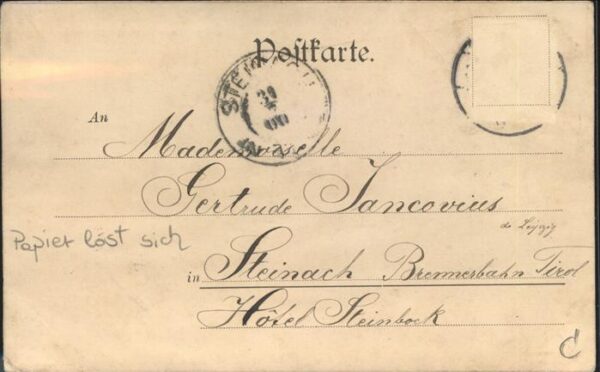 Postkarte.
STEINACH
31
5
00
An
Mademoiselle
Gertrude Jancovius
de Leipzig
Papier löst sich
in Steinach Brennerbahn Tirol
Hôtel Steinbock